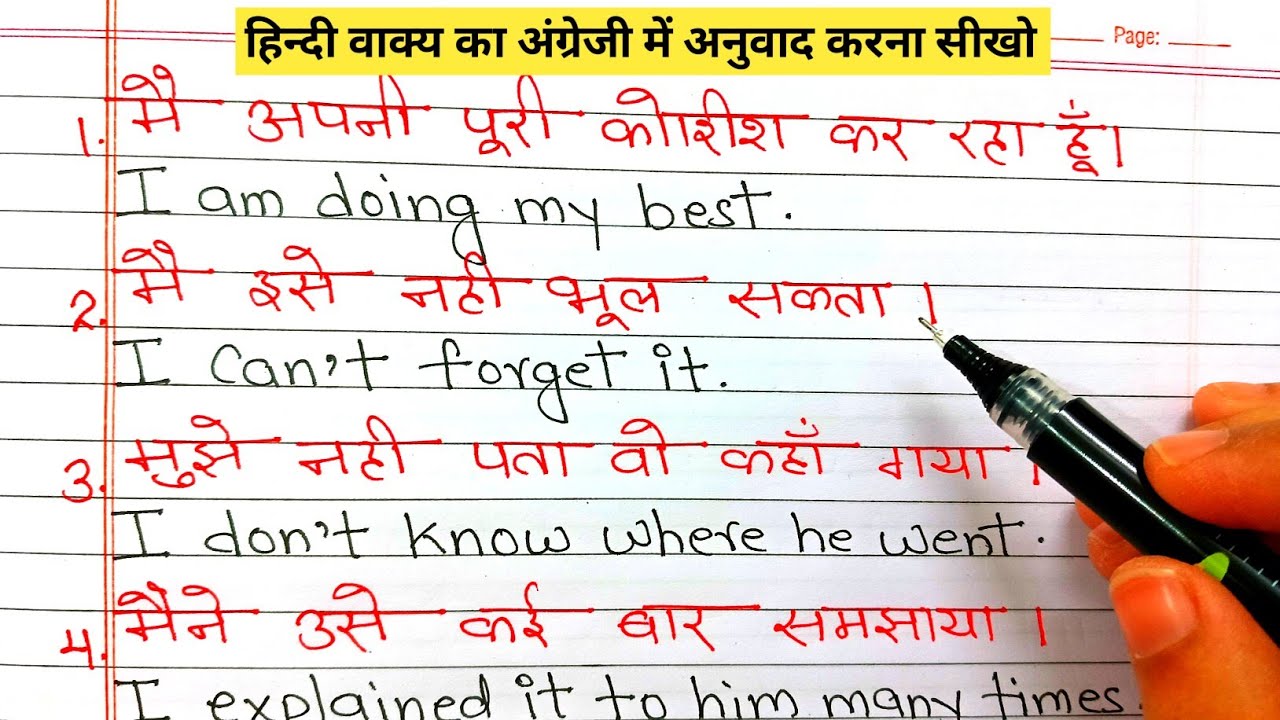 हिन्दी वाक्य का अंग्रेजी में अनुवाद करना सीखो
Page:
1. मै अपनी पूरी कोशिश कर रहा हूँ।
I am doing my best.
2. मै इसे नही भूल सकता।
I can't forget it.
3. मुझे नही पता वो कहाँ गया।
I don't know where he went.
4. मैने उसे कई बार समझाया।
I explained it to him many times.